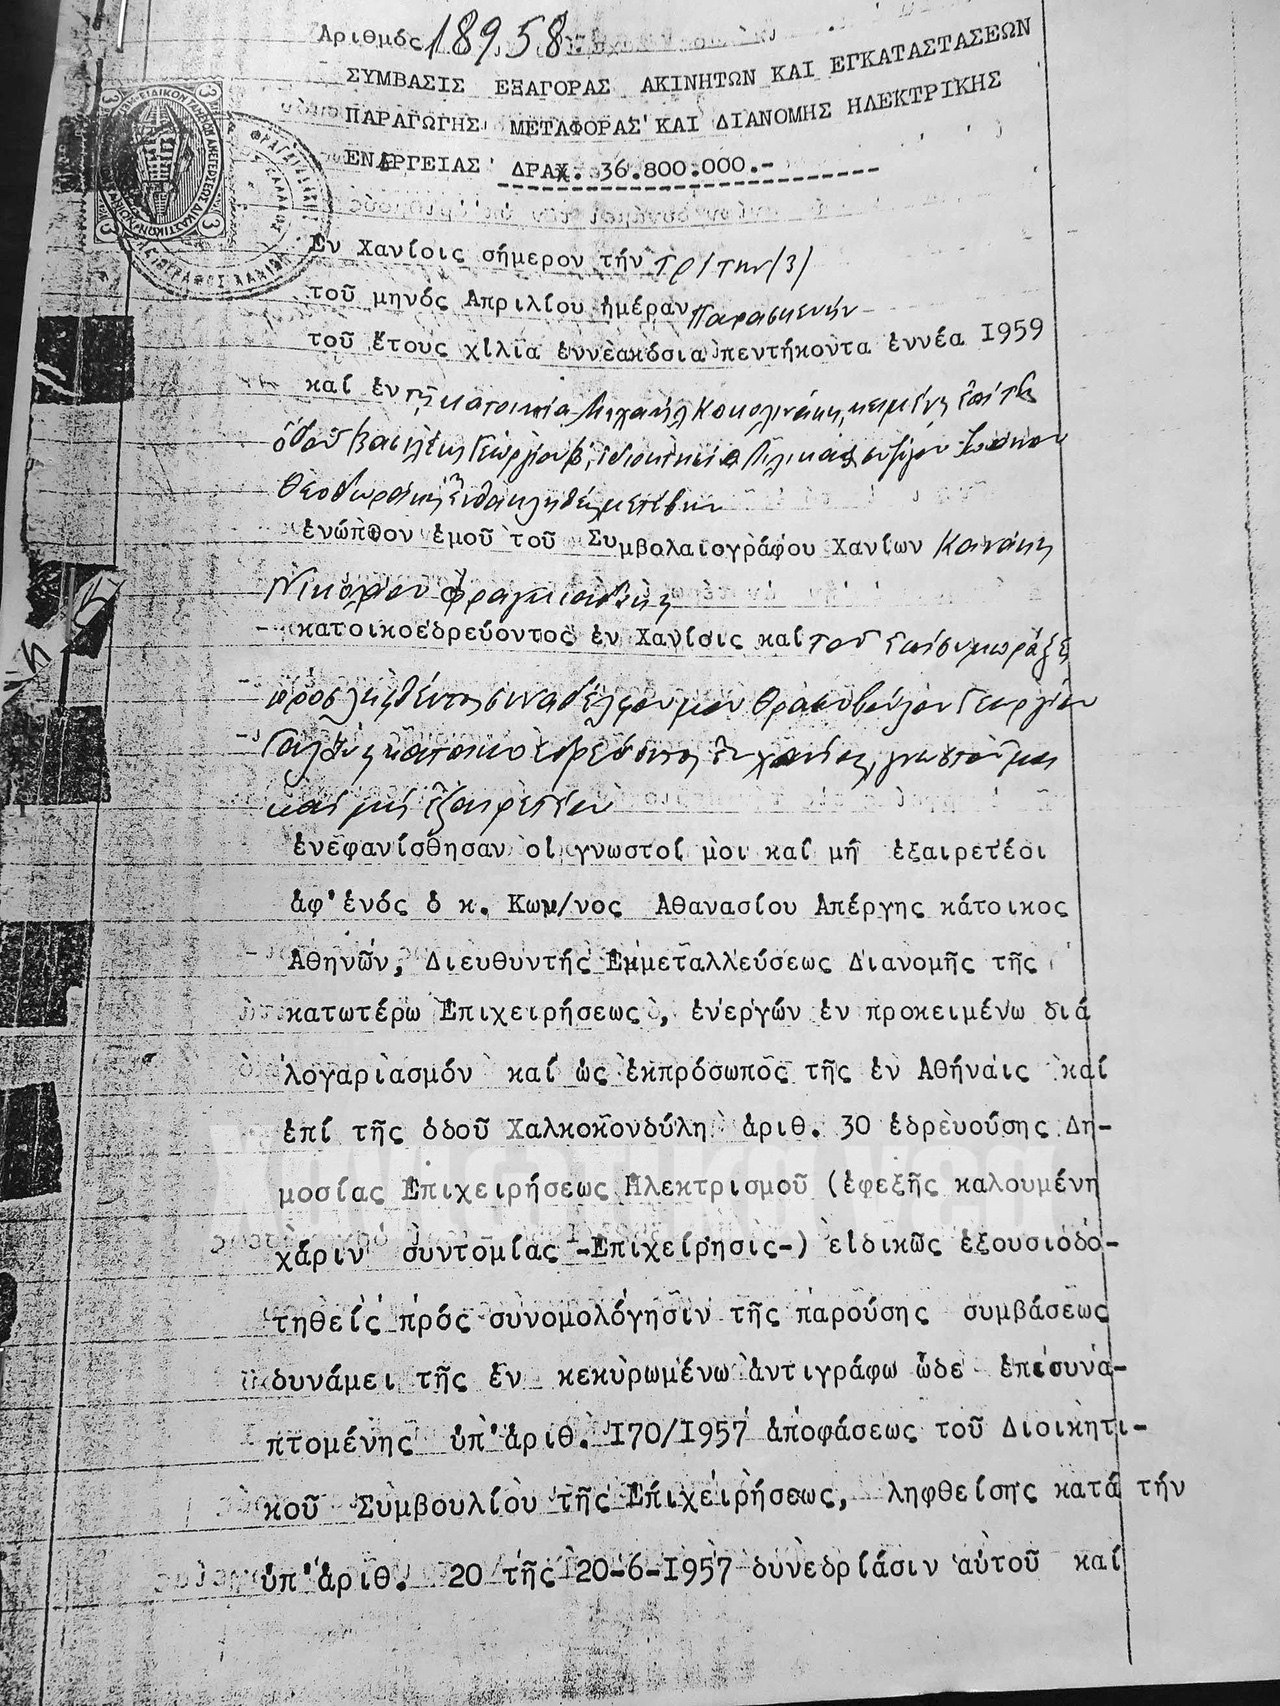 Αριθμός 18958
ΣΥΜΒΑΣΙΣ ΕΞΑΓΟΡΑΣ ΑΚΙΝΗΤΩΝ ΚΑΙ ΕΓΚΑΤΑΣΤΑΣΕΩΝ
ΠΑΡΑΓΩΓΗΣ ΜΕΤΑΦΟΡΑΣ ΚΑΙ ΔΙΑΝΟΜΗΣ ΗΛΕΚΤΡΙΚΗΣ
ΕΝΕΡΓΕΙΑΣ ΔΡΑΧ. 36.800.000.-
Εν Χανίοις σήμερον τήν τρίτην (3)
τοῦ μηνός Απριλίου ἡμέραν Παρασκευήν
τοῦ ἔτους χίλια ἐννεακόσια πεντήκοντα ἐννέα 1959
καί ἐν τῇ κατοικία Μιχαήλ κειμένη ἐπί τῆς
ὁδοῦ Βασιλέως Γεωργίου β, ἰδιοκτησία συζύγου
Θεοδωράκη
ἐνώπιον ἐμοῦ τοῦ Συμβολαιογράφου Χανίων
Νικολάου Φραγκιαδάκη
κατοικοεδρεύοντος ἐν Χανίοις καί τοῦ
προσληφθέντος συναδέλφου μου Θρασυβούλου Γεωργίου
κατοικοεδρεύοντος ἐν Χανίοις, γνωστοῦ μοι
καί μή ἐξαιρετέου
ἐνεφανίσθησαν οἱ γνωστοί μοι καί μή ἐξαιρετέοι
ἀφ'ἑνός ὁ κ. Κων/νος Αθανασίου Απέργης κάτοικος
Αθηνῶν, Διευθυντής Εκμεταλλεύσεως Διανομῆς τῆς
κατωτέρω Επιχειρήσεως, ἐνεργών ἐν προκειμένω διά
λογαριασμόν καί ὡς ἐκπρόσωπος τῆς ἐν Αθήναις καί
ἐπί τῆς ὁδοῦ Χαλκοκονδύλη ἀριθ. 30 ἑδρευούσης Δη-
μοσίας Επιχειρήσεως Ηλεκτρισμοῦ (ἐφεξῆς καλουμένη
χάριν συντομίας -Επιχείρησις-) εἰδικῶς ἐξουσιοδο-
τηθείς πρός συνομολόγησιν τῆς παρούσης συμβάσεως
δυνάμει τῆς ἐν κεκυρωμένω ἀντιγράφω ὧδε ἐπισυνα-
πτομένης ὑπ'ἀριθ. 170/1957 ἀποφάσεως τοῦ Διοικητι-
κοῦ Συμβουλίου τῆς Επιχειρήσεως, ληφθείσης κατά τήν
ὑπ'ἀριθ. 20 τῆς 20-6-1957 συνεδρίασιν αὐτοῦ καί
Χανιώτικα νέα